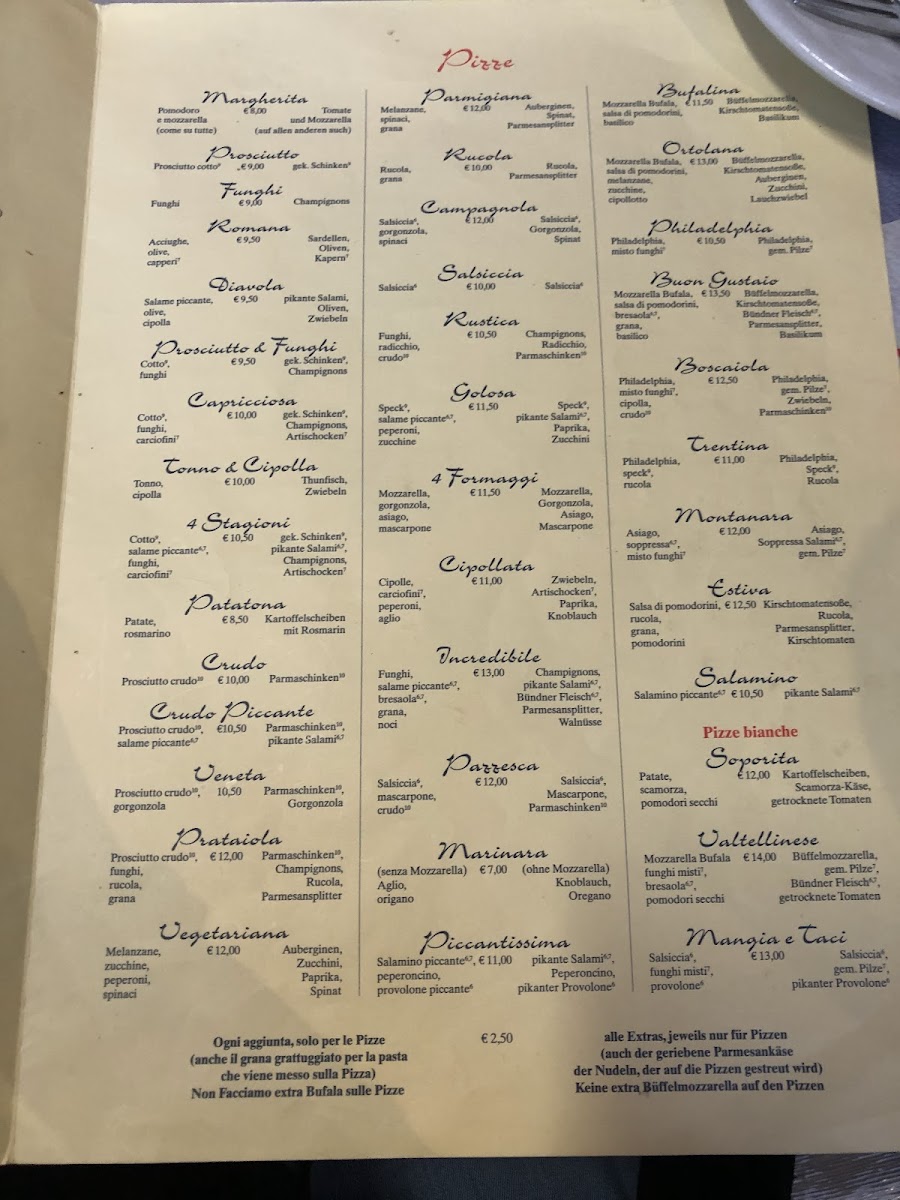 Pizze
Margherita
Pomodoro € 8,00 Tomate
e mozzarella und Mozzarella
(come su tutte) (auf allen anderen auch)
Prosciutto
Prosciutto cotto⁹ € 9,00 gek. Schinken⁹
Funghi
Funghi € 9,00 Champignons
Romana
Acciughe, € 9,50 Sardellen,
olive, Oliven,
capperi⁷ Kapern⁷
Diavola
Salame piccante, € 9,50 pikante Salami,
olive, Oliven,
cipolla Zwiebeln
Prosciutto & Funghi
Cotto⁹, € 9,50 gek. Schinken⁹,
funghi Champignons
Capricciosa
Cotto⁹, € 10,00 gek. Schinken⁹,
funghi, Champignons,
carciofini⁷ Artischocken⁷
Tonno & Cipolla
Tonno, € 10,00 Thunfisch,
cipolla Zwiebeln
4 Stagioni
Cotto⁹, € 10,50 gek. Schinken⁹,
salame piccante⁶,⁷, pikante Salami⁶,⁷,
funghi, Champignons,
carciofini⁷ Artischocken⁷
Patatona
Patate, € 8,50 Kartoffelscheiben
rosmarino mit Rosmarin
Crudo
Prosciutto crudo¹⁰ € 10,00 Parmaschinken¹⁰
Crudo Piccante
Prosciutto crudo¹⁰, €10,50 Parmaschinken¹⁰,
salame piccante⁶,⁷ pikante Salami⁶,⁷
Veneta
Prosciutto crudo¹⁰, 10,50 Parmaschinken¹⁰,
gorgonzola Gorgonzola
Prataiola
Prosciutto crudo¹⁰, € 12,00 Parmaschinken¹⁰,
funghi, Champignons,
rucola, Rucola,
grana Parmesansplitter
Vegetariana
Melanzane, € 12,00 Auberginen,
zucchine, Zucchini,
peperoni, Paprika,
spinaci Spinat
Parmigiana
Melanzane, € 12,00 Auberginen,
spinaci, Spinat,
grana Parmesansplitter
Rucola
Rucola, € 10,00 Rucola,
grana Parmesansplitter
Campagnola
Salsiccia⁶, € 12,00 Salsiccia⁶,
gorgonzola, Gorgonzola,
spinaci Spinat
Salsiccia
Salsiccia⁶ € 10,00 Salsiccia⁶
Rustica
Funghi, € 10,50 Champignons,
radicchio, Radicchio,
crudo¹⁰ Parmaschinken¹⁰
Golosa
Speck⁹, € 11,50 Speck⁹,
salame piccante⁶,⁷, pikante Salami⁶,⁷,
peperoni, Paprika,
zucchine Zucchini
4 Formaggi
Mozzarella, € 11,50 Mozzarella,
gorgonzola, Gorgonzola,
asiago, Asiago,
mascarpone Mascarpone
Cipollata
Cipolle, € 11,00 Zwiebeln,
carciofini⁷, Artischocken⁷,
peperoni, Paprika,
aglio Knoblauch
Incredibile
Funghi, € 13,00 Champignons,
salame piccante⁶,⁷, pikante Salami⁶,⁷,
bresaola⁶,⁷, Bündner Fleisch⁶,⁷,
grana, Parmesansplitter,
noci Walnüsse
Pazzesca
Salsiccia⁶, € 12,00 Salsiccia⁶,
mascarpone, Mascarpone,
crudo¹⁰ Parmaschinken¹⁰
Marinara
(senza Mozzarella) € 7,00 (ohne Mozzarella)
Aglio, Knoblauch,
origano Oregano
Piccantissima
Salamino piccante⁶,⁷, € 11,00 pikante Salami⁶,⁷,
peperoncino, Peperoncino,
provolone piccante⁶ pikanter Provolone⁶
Bufalina
Mozzarella Bufala, € 11,50 Büffelmozzarella,
salsa di pomodorini, Kirschtomatensoße,
basilico Basilikum
Ortolana
Mozzarella Bufala, € 13,00 Büffelmozzarella,
salsa di pomodorini, Kirschtomatensoße,
melanzane, Auberginen,
zucchine, Zucchini,
cipollotto Lauchzwiebel
Philadelphia
Philadelphia, € 10,50 Philadelphia,
misto funghi⁷ gem. Pilze⁷
Buon Gustaio
Mozzarella Bufala, € 13,50 Büffelmozzarella,
salsa di pomodorini, Kirschtomatensoße,
bresaola⁶,⁷, Bündner Fleisch⁶,⁷,
grana, Parmesansplitter,
basilico Basilikum
Boscaiola
Philadelphia, € 12,50 Philadelphia,
misto funghi⁷, gem. Pilze⁷,
cipolla, Zwiebeln,
crudo¹⁰ Parmaschinken¹⁰
Trentina
Philadelphia, € 11,00 Philadelphia,
speck⁹, Speck⁹,
rucola Rucola
Montanara
Asiago, € 12,00 Asiago,
soppressa⁶,⁷, Soppressa Salami⁶,⁷,
misto funghi⁷ gem. Pilze⁷
Estiva
Salsa di pomodorini, € 12,50 Kirschtomatensoße,
rucola, Rucola,
grana, Parmesansplitter,
pomodorini Kirschtomaten
Salamino
Salamino piccante⁶,⁷ € 10,50 pikante Salami⁶,⁷
Pizze bianche
Soporita
Patate, € 12,00 Kartoffelscheiben,
scamorza, Scamorza-Käse,
pomodori secchi getrocknete Tomaten
Valtellinese
Mozzarella Bufala € 14,00 Büffelmozzarella,
funghi misti⁷, gem. Pilze⁷,
bresaola⁶,⁷, Bündner Fleisch⁶,⁷,
pomodori secchi getrocknete Tomaten
Mangia e Taci
Salsiccia⁶, € 13,00 Salsiccia⁶,
funghi misti⁷, gem. Pilze⁷,
provolone⁶ pikanter Provolone⁶
Ogni aggiunta, solo per le Pizze € 2,50 alle Extras, jeweils nur für Pizzen
(anche il grana grattuggiato per la pasta (auch der geriebene Parmesankäse
che viene messo sulla Pizza) der Nudeln, der auf die Pizzen gestreut wird)
Non Facciamo extra Bufala sulle Pizze Keine extra Büffelmozzarella auf den Pizzen